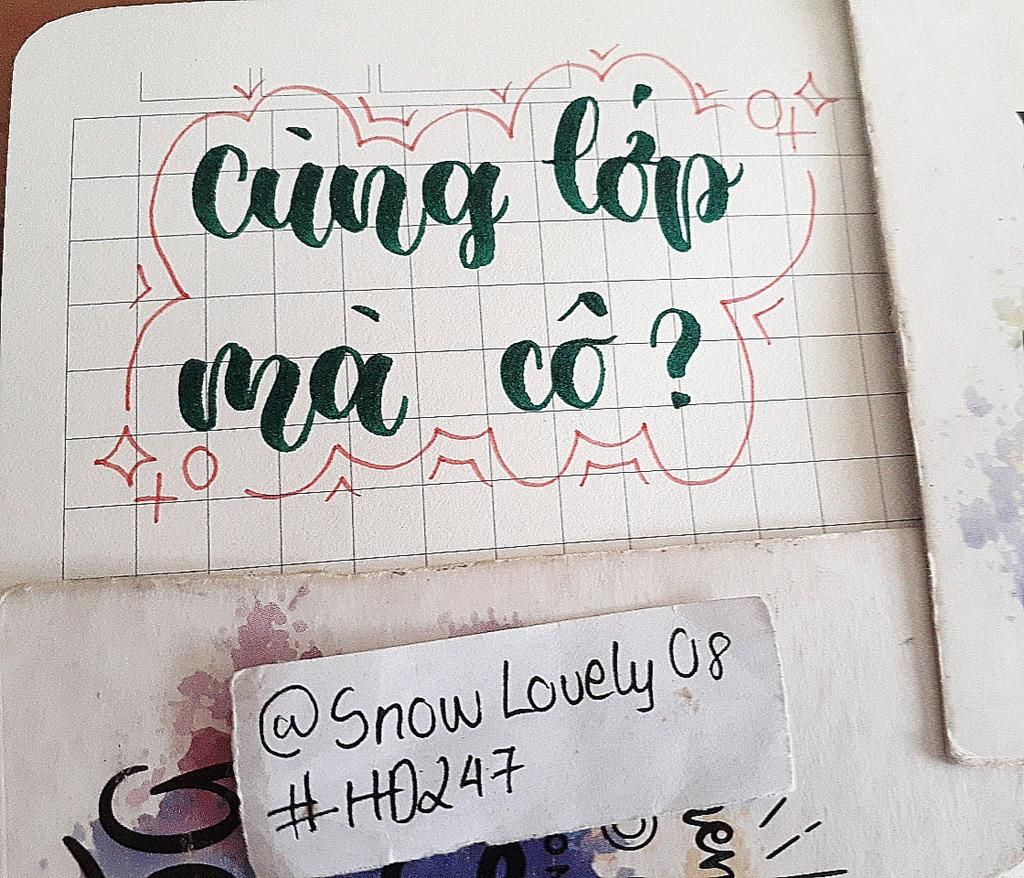 cùng lớp
mà cô?
@Snow Lovely 08
#HD247